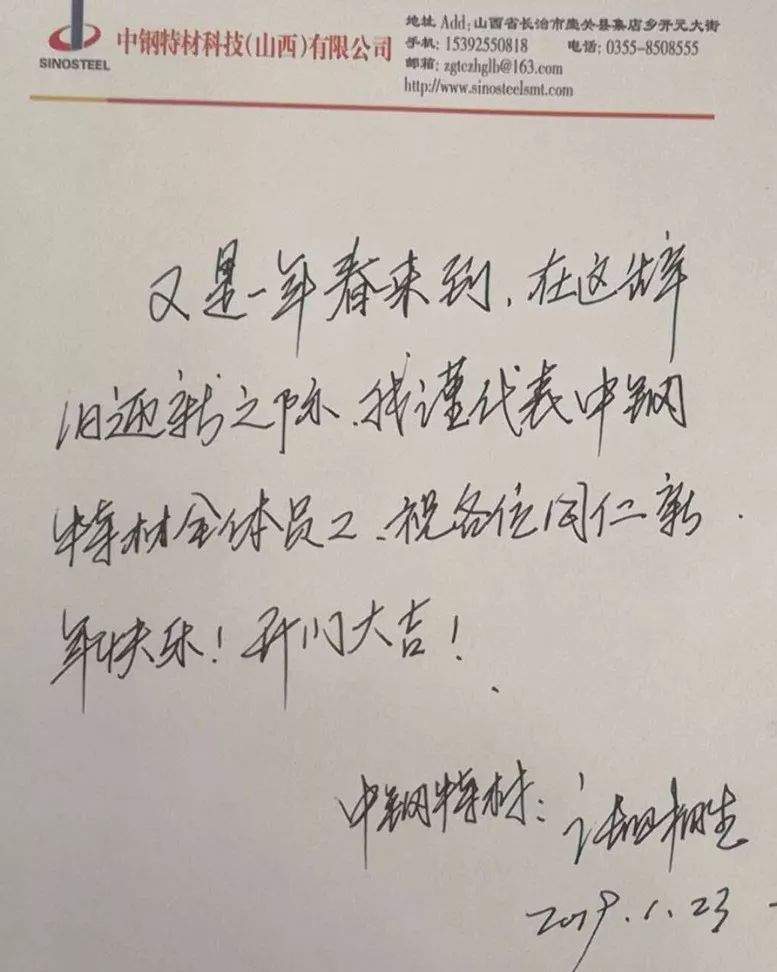 中钢特材科技(山西)有限公司
SINOSTEEL
地址 Add:山西省长治市壶关县集店乡开元大街
手机: 15392550818 电话: 0355-8508555
邮箱: zgtczhglb@163.com
http://www.sinosteelsmt.com
又是一年春来到,在这辞
旧迎新之际,我谨代表中钢
特材全体员工,祝各位同仁新
年快乐!开门大吉!
中钢特材:
2019.1.23